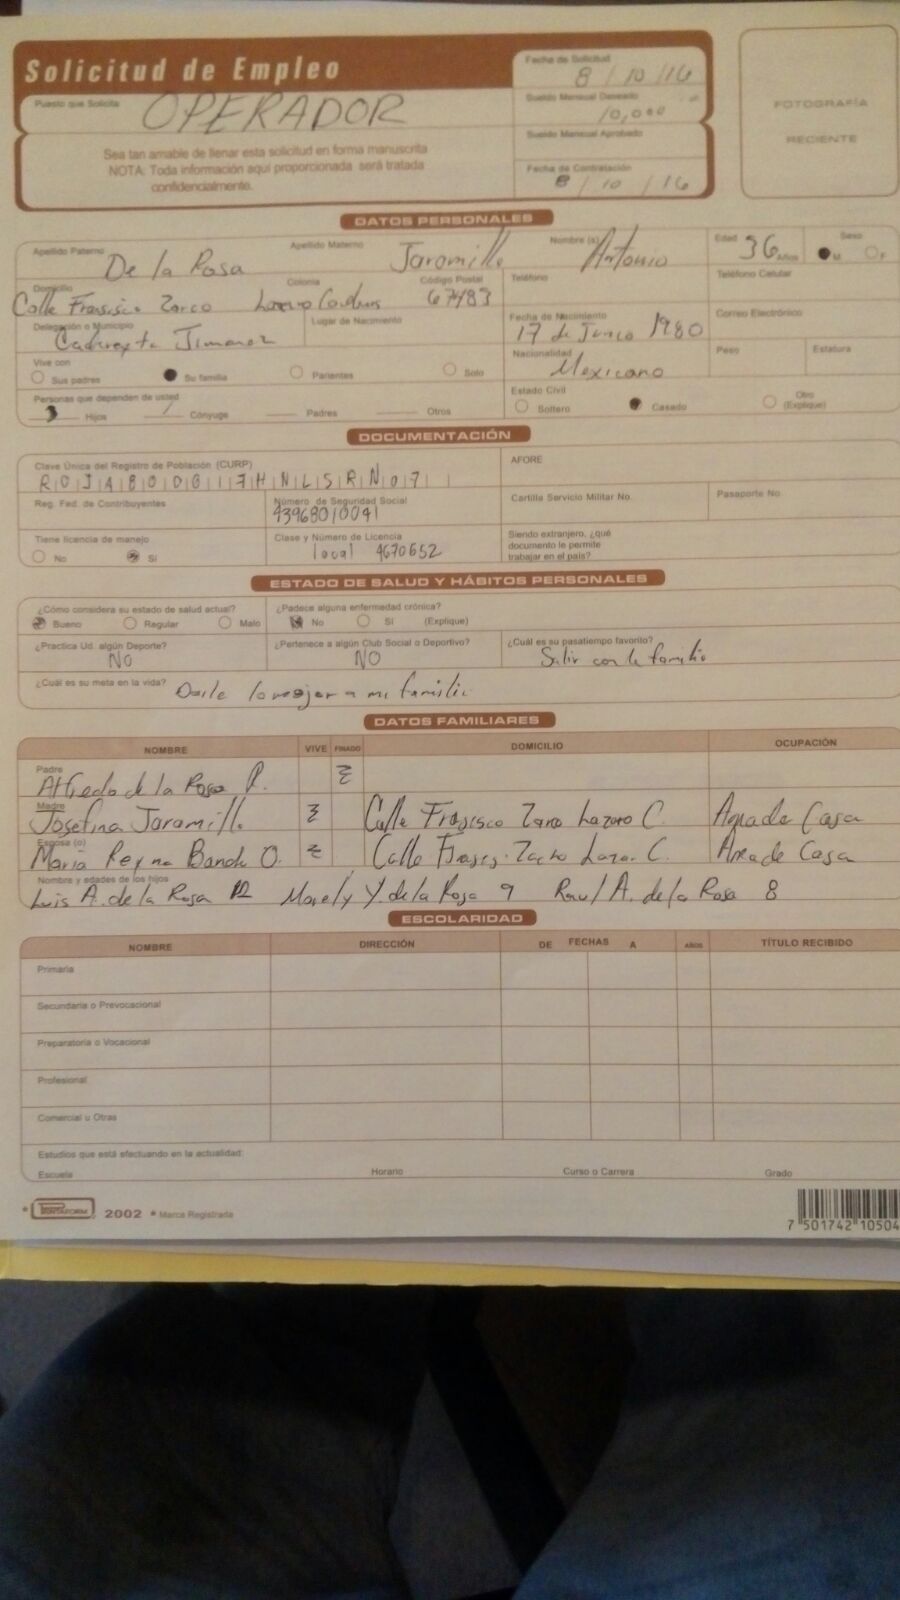 Solicitud de Empleo
Fecha de Solicitud
8 / 10 / 16
Puesto que Solicita
OPERADOR
Sueldo Mensual Deseado
10,000
Sea tan amable de llenar esta solicitud en forma manuscrita
NOTA: Toda información aquí proporcionada será tratada
confidencialmente.
Sueldo Mensual Aprobado
Fecha de Contratación
8 / 10 / 16
FOTOGRAFÍA
RECIENTE
DATOS PERSONALES
Apellido Paterno Apellido Materno Nombre (s) Edad Sexo
De la Rosa Jaramillo Antonio 36 Años M F
Domicilio Colonia Código Postal Teléfono Teléfono Celular
Calle Frasisco Zarco 67483
Delegación o Municipio Lugar de Nacimiento Fecha de Nacimiento Correo Electrónico
Jimenez 17 de Junio 1980
Vive con Nacionalidad Peso Estatura
Sus padres Su familia Parientes Solo Mexicano
Personas que dependen de usted Estado Civil
3 Hijos / Cónyuge Padres Otros Soltero Casado Otro (Explique)
DOCUMENTACIÓN
Clave Única del Registro de Población (CURP) AFORE
ROJA800617HNLSRN07
Reg. Fed. de Contribuyentes Número de Seguridad Social Cartilla Servicio Militar No. Pasaporte No
43968010041
Tiene licencia de manejo Clase y Número de Licencia Siendo extranjero, ¿qué
documento le permite
trabajar en el país?
No Sí local 4670652
ESTADO DE SALUD Y HÁBITOS PERSONALES
¿Cómo considera su estado de salud actual? ¿Padece alguna enfermedad crónica?
Bueno Regular Malo No Sí (Explique)
¿Practica Ud. algún Deporte? ¿Pertenece a algún Club Social o Deportivo? ¿Cuál es su pasatiempo favorito?
NO NO Salir con la familia
¿Cuál es su meta en la vida? Darle lo mejor a mi familia
DATOS FAMILIARES
NOMBRE VIVE FINADO DOMICILIO OCUPACIÓN
Padre
Alfredo de la Rosa R.
Madre
Josefina Jaramillo Calle Frasisco Zarco Lazaro C. Ama de Casa
Esposa (o)
Maria Reyna Banda O. Calle Zarco Lazar. C. Ama de Casa
Nombre y edades de los hijos
Luis A. de la Rosa 12 Y. de la Rosa 9 Raul A. de la Rosa 8
ESCOLARIDAD
NOMBRE DIRECCIÓN DE FECHAS A AÑOS TÍTULO RECIBIDO
Primaria
Secundaria o Prevocacional
Preparatoria o Vocacional
Profesional
Comercial u Otras
Estudios que está efectuando en la actualidad:
Escuela Horario Curso o Carrera Grado
PRINTAFORM 2002 * Marca Registrada
7 501742 10504